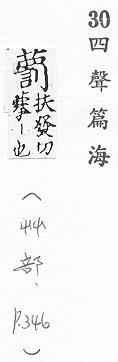 30
四聲篇海
藅
扶發切
也
(艸部、P.346)